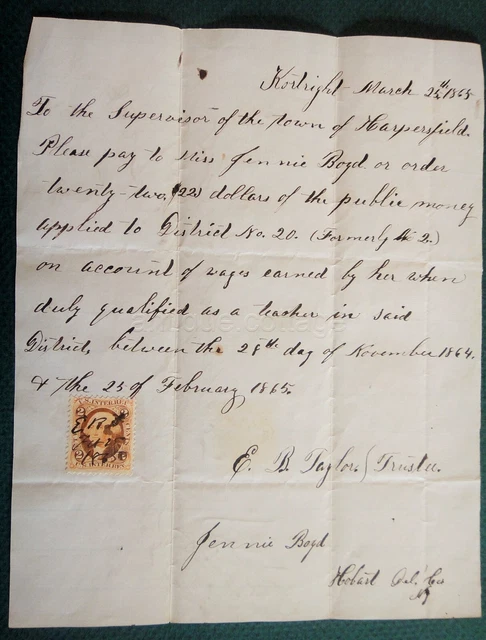 Kortright March 25th, 1865
To the Supervisor of the town of Harpersfield.
Please pay to Miss Jennie Boyd or order
twenty-two (22) dollars of the public money
applied to District No. 20. (Formerly 2.)
on account of wages earned by her when
duly qualified as a teacher in said
District, between the 28th day of November 1864.
& the 25 of February 1865.
U.S. INTER. REV.
2 2
E. B. T.
2 2
E. B. Taylor. } Trustee.
Jennie Boyd
Hobart Del. Co
NY